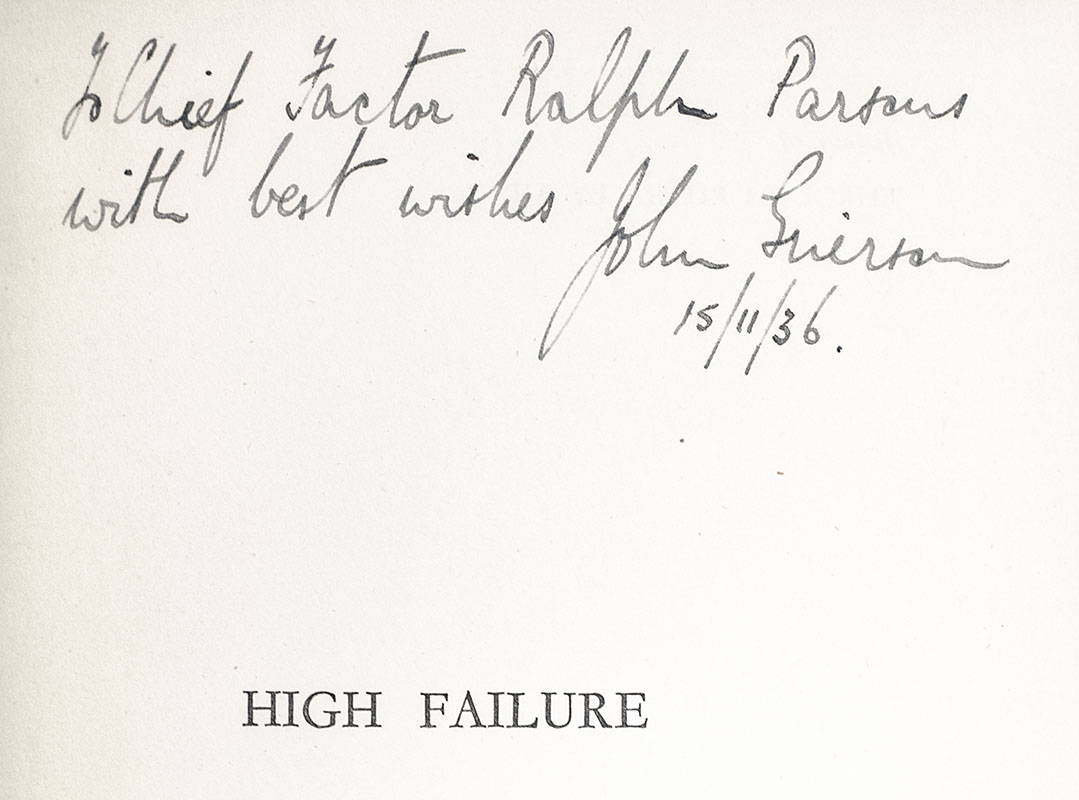 To Chief Factor Ralph Parsons
with best wishes
John Grierson
15/11/36.
HIGH FAILURE